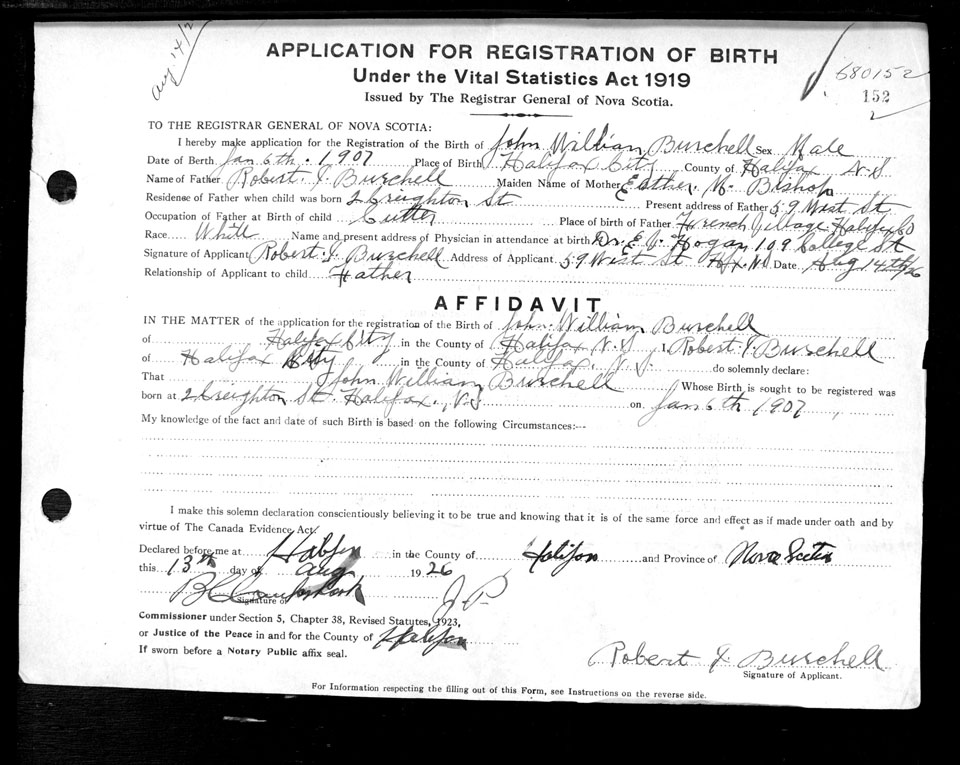 Aug 14/2
APPLICATION FOR REGISTRATION OF BIRTH
Under the Vital Statistics Act 1919
Issued by The Registrar General of Nova Scotia.
680152
152
2
TO THE REGISTRAR GENERAL OF NOVA SCOTIA:
I hereby make application for the Registration of the Birth of John William Burchell Sex Male
Date of Berth Jan 6th. 1907 Place of Birth Halifax City County of Halifax N.S
Name of Father Robert. J. Burchell Maiden Name of Mother Esther. M. Bishop
Residense of Father when child was born 2 Creighton St Present address of Eather 59 West St.
Occupation of Father at Birth of child Cutter Place of birth of Father French Village Halifax Co
Race White Name and present address of Physician in attendance at birth Dr. E. J. Hogan 109 College St
Signature of Applicant Robert. J. Burchell Address of Applicant 59 West St Hfx. N.S Date Aug 14th/26
Relationship of Applicant to child Father
AFFIDAVIT
IN THE MATTER of the application for the registration of the Birth of John William Burchell
of Halifax City in the County of Halifax N.S I, Robert J. Burchell
of Halifax City in the County of Halifax. N.S. do solemnly declare:
That John William Burchell Whose Birth is sought to be registered was
born at 2 Creighton St. Halifax., N.S on Jan 6th 1907,
My knowledge of the fact and date of such Birth is based on the following Circumstances:--
I make this solemn declaration conscientiously believing it to be true and knowing that it is of the same force and effect as if made under oath and by
virtue of The Canada Evidence Act.
Declared before me at Halifax in the County of Halifax and Province of Nova Scotia
this 13th day of Aug 1926
Signature of J.P.
Commissioner under Section 5, Chapter 38, Revised Statutes, 1923,
or Justice of the Peace in and for the County of Halifax
If sworn before a Notary Public affix seal.
Robert J Burchell
Signature of Applicant.
For Information respecting the filling out of this Form, see Instructions on the reverse side.